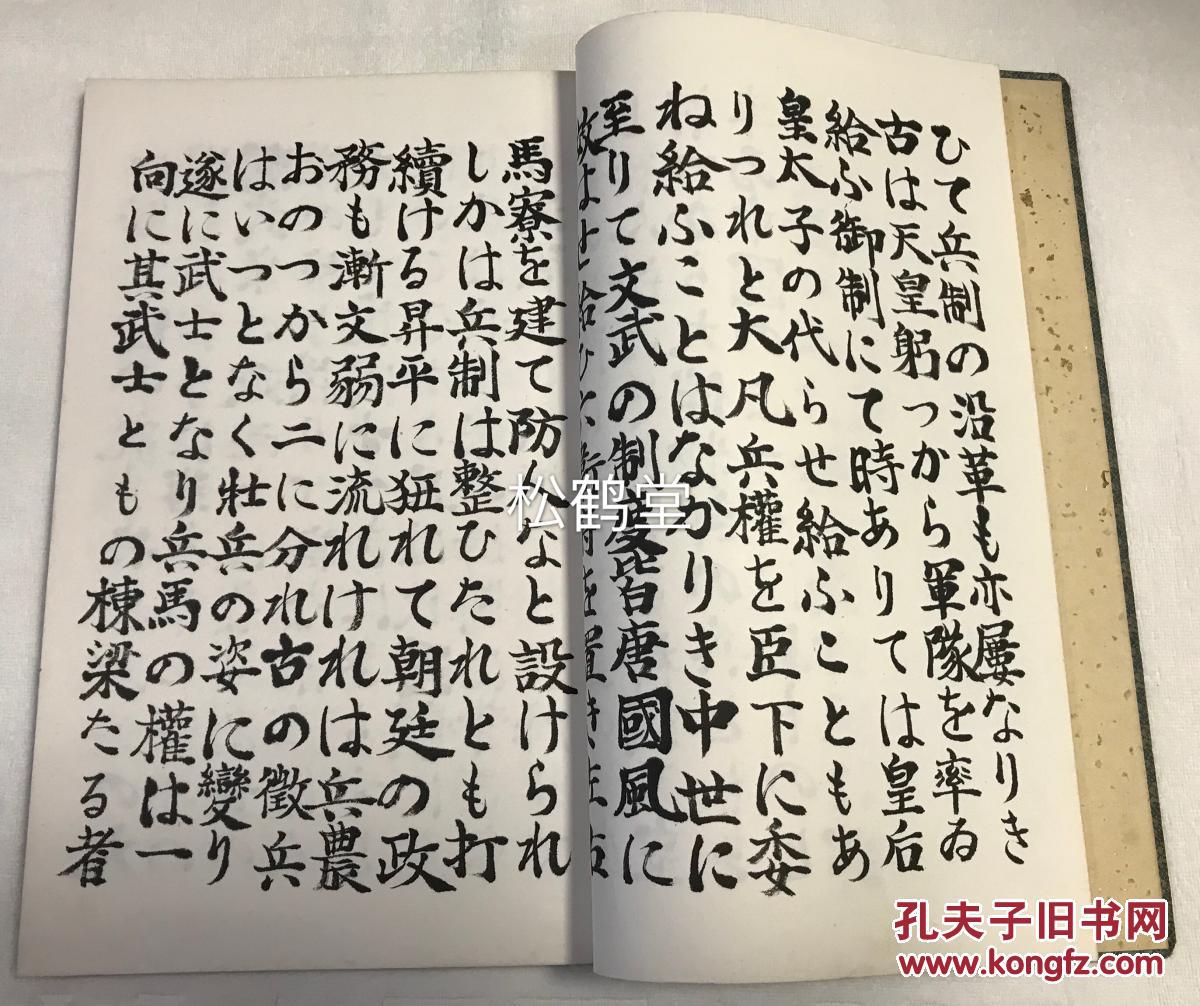 ひて兵制の沿革も亦屡なりき
古は天皇躬つから軍隊を率ゐ
給ふ御制にて時ありては皇后
皇太子の代らせ給ふこともあ
りつれと大凡兵權を臣下に委
ね給ふことはなかりき中世に
至りて文武の制度皆唐國風に
給ひ 置き左右
馬寮を建て防人なと設けられ
しかは兵制は整ひたれとも打
續ける昇平に狃れて朝廷の政
務も漸文弱に流れけれは兵農
おのつから二に分れ古の徴兵
はいつとなく壯兵の姿に變り
遂に武士となり兵馬の權は一
向に其武士ともの棟梁たる者
松鹤堂
孔夫子旧书网
www.kongfz.com